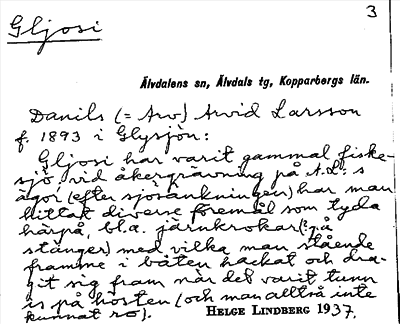 Gljosi
3
Älvdalens sn, Älvdals tg, Kopparbergs län.
Danils (= Aw) Arvid Larsson
f. 1893 i Glysjön:
Gljosi har varit gammal fiske-
sjö, vid åkergrävning på A.L:s
ägor (efter sjösänkningen) har man
hittat diverse föremål som tyda
härpå, bl.a. järnkrokar (:på
stänger) med vilka man stående
framme i båten hackat och dra-
git sig fram när det varit tunn
is på hösten (och man alltså inte
kunnat ro).
HELGE LINDBERG 1937.